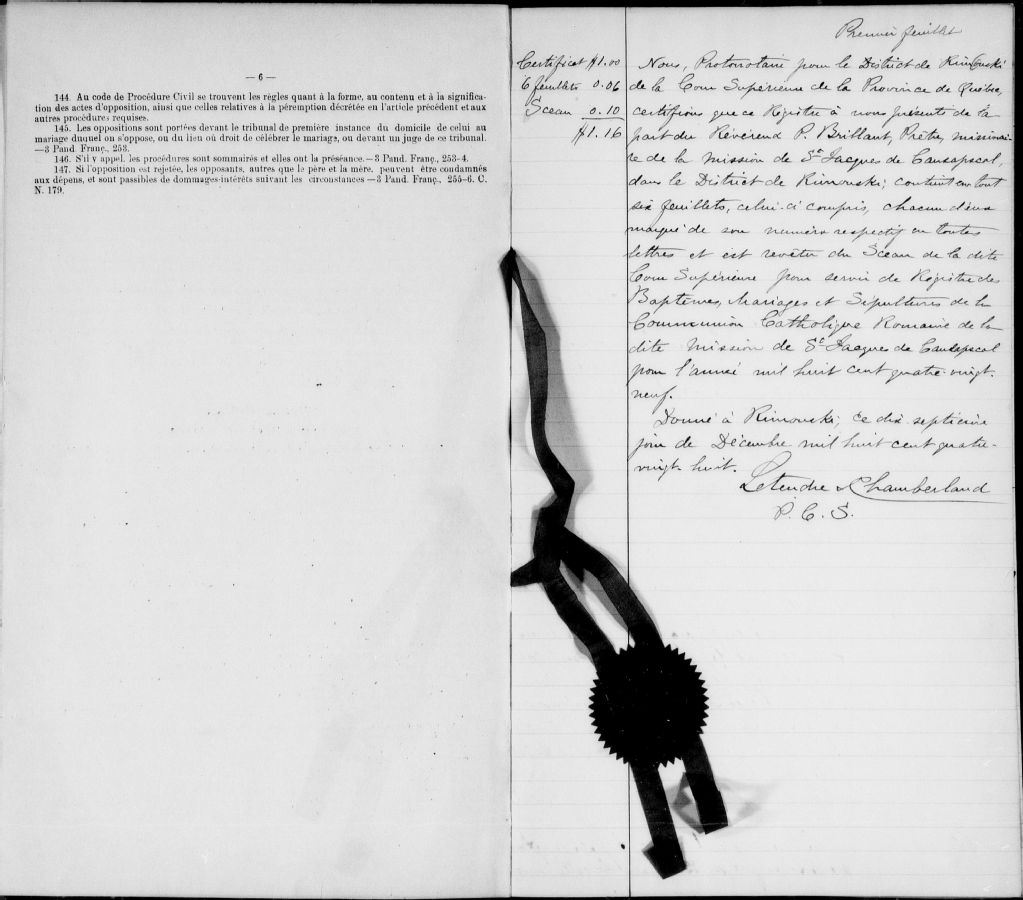 — 6 —
144. Au code de Procédure Civil se trouvent les règles quant à la forme, au contenu et à la significa-
tion des actes d'opposition, ainsi que celles relatives à la péremption décrétée en l'article précédent et aux
autres procédures requises.
145. Les oppositions sont portées devant le tribunal de première instance du domicile de celui au
mariage duquel on s'oppose, ou du lien où droit de célébrer le mariage, ou devant un juge de ce tribunal.
—3 Pand. Franç., 253.
146. S'il y appel, les procédures sont sommairés et elles ont la préséance.—3 Pand. Franç., 253-4.
147. Si l'opposition est rejetée, les opposants, autres que le père et la mère, peuvent être condamnés
aux dépens, et sont passibles de dommages-intérêts suivant les circonstances—3 Pand. Franç., 255-6. C.
N. 179.
Certificat $1.00
6 feuillets 0.06
Sceau 0.10
$1.16
Premier feuillet
Nous, Protonotaire pour le District de Rimouski
de la Cour Supérieure de la Province de Québec,
certifions que ce Régistre à nous présenté de la
part du Révérend P. Brillant, Prêtre, missionai-
re de la mission de St Jacques de Causapscal,
dans le District de Rimouski; contient en tout
six feuillets, celui-ci compris, chacun d'eux
marqué de son numéro respectif en toutes
lettres et est revêtu du Sceau de la dite
Cour Supérieure pour servir de Régistre des
Baptêmes, Mariages et Sépultures de la
Communion Catholique Romaine de la
dite Mission de St Jacques de Causapscal
pour l'année mil huit cent quatre-vingt-
neuf.
Donné à Rimouski, ce dix-septième
jour de Décembre mil huit cent quatre-
vingt-huit.
Letendre & Chamberland
P. C. S.